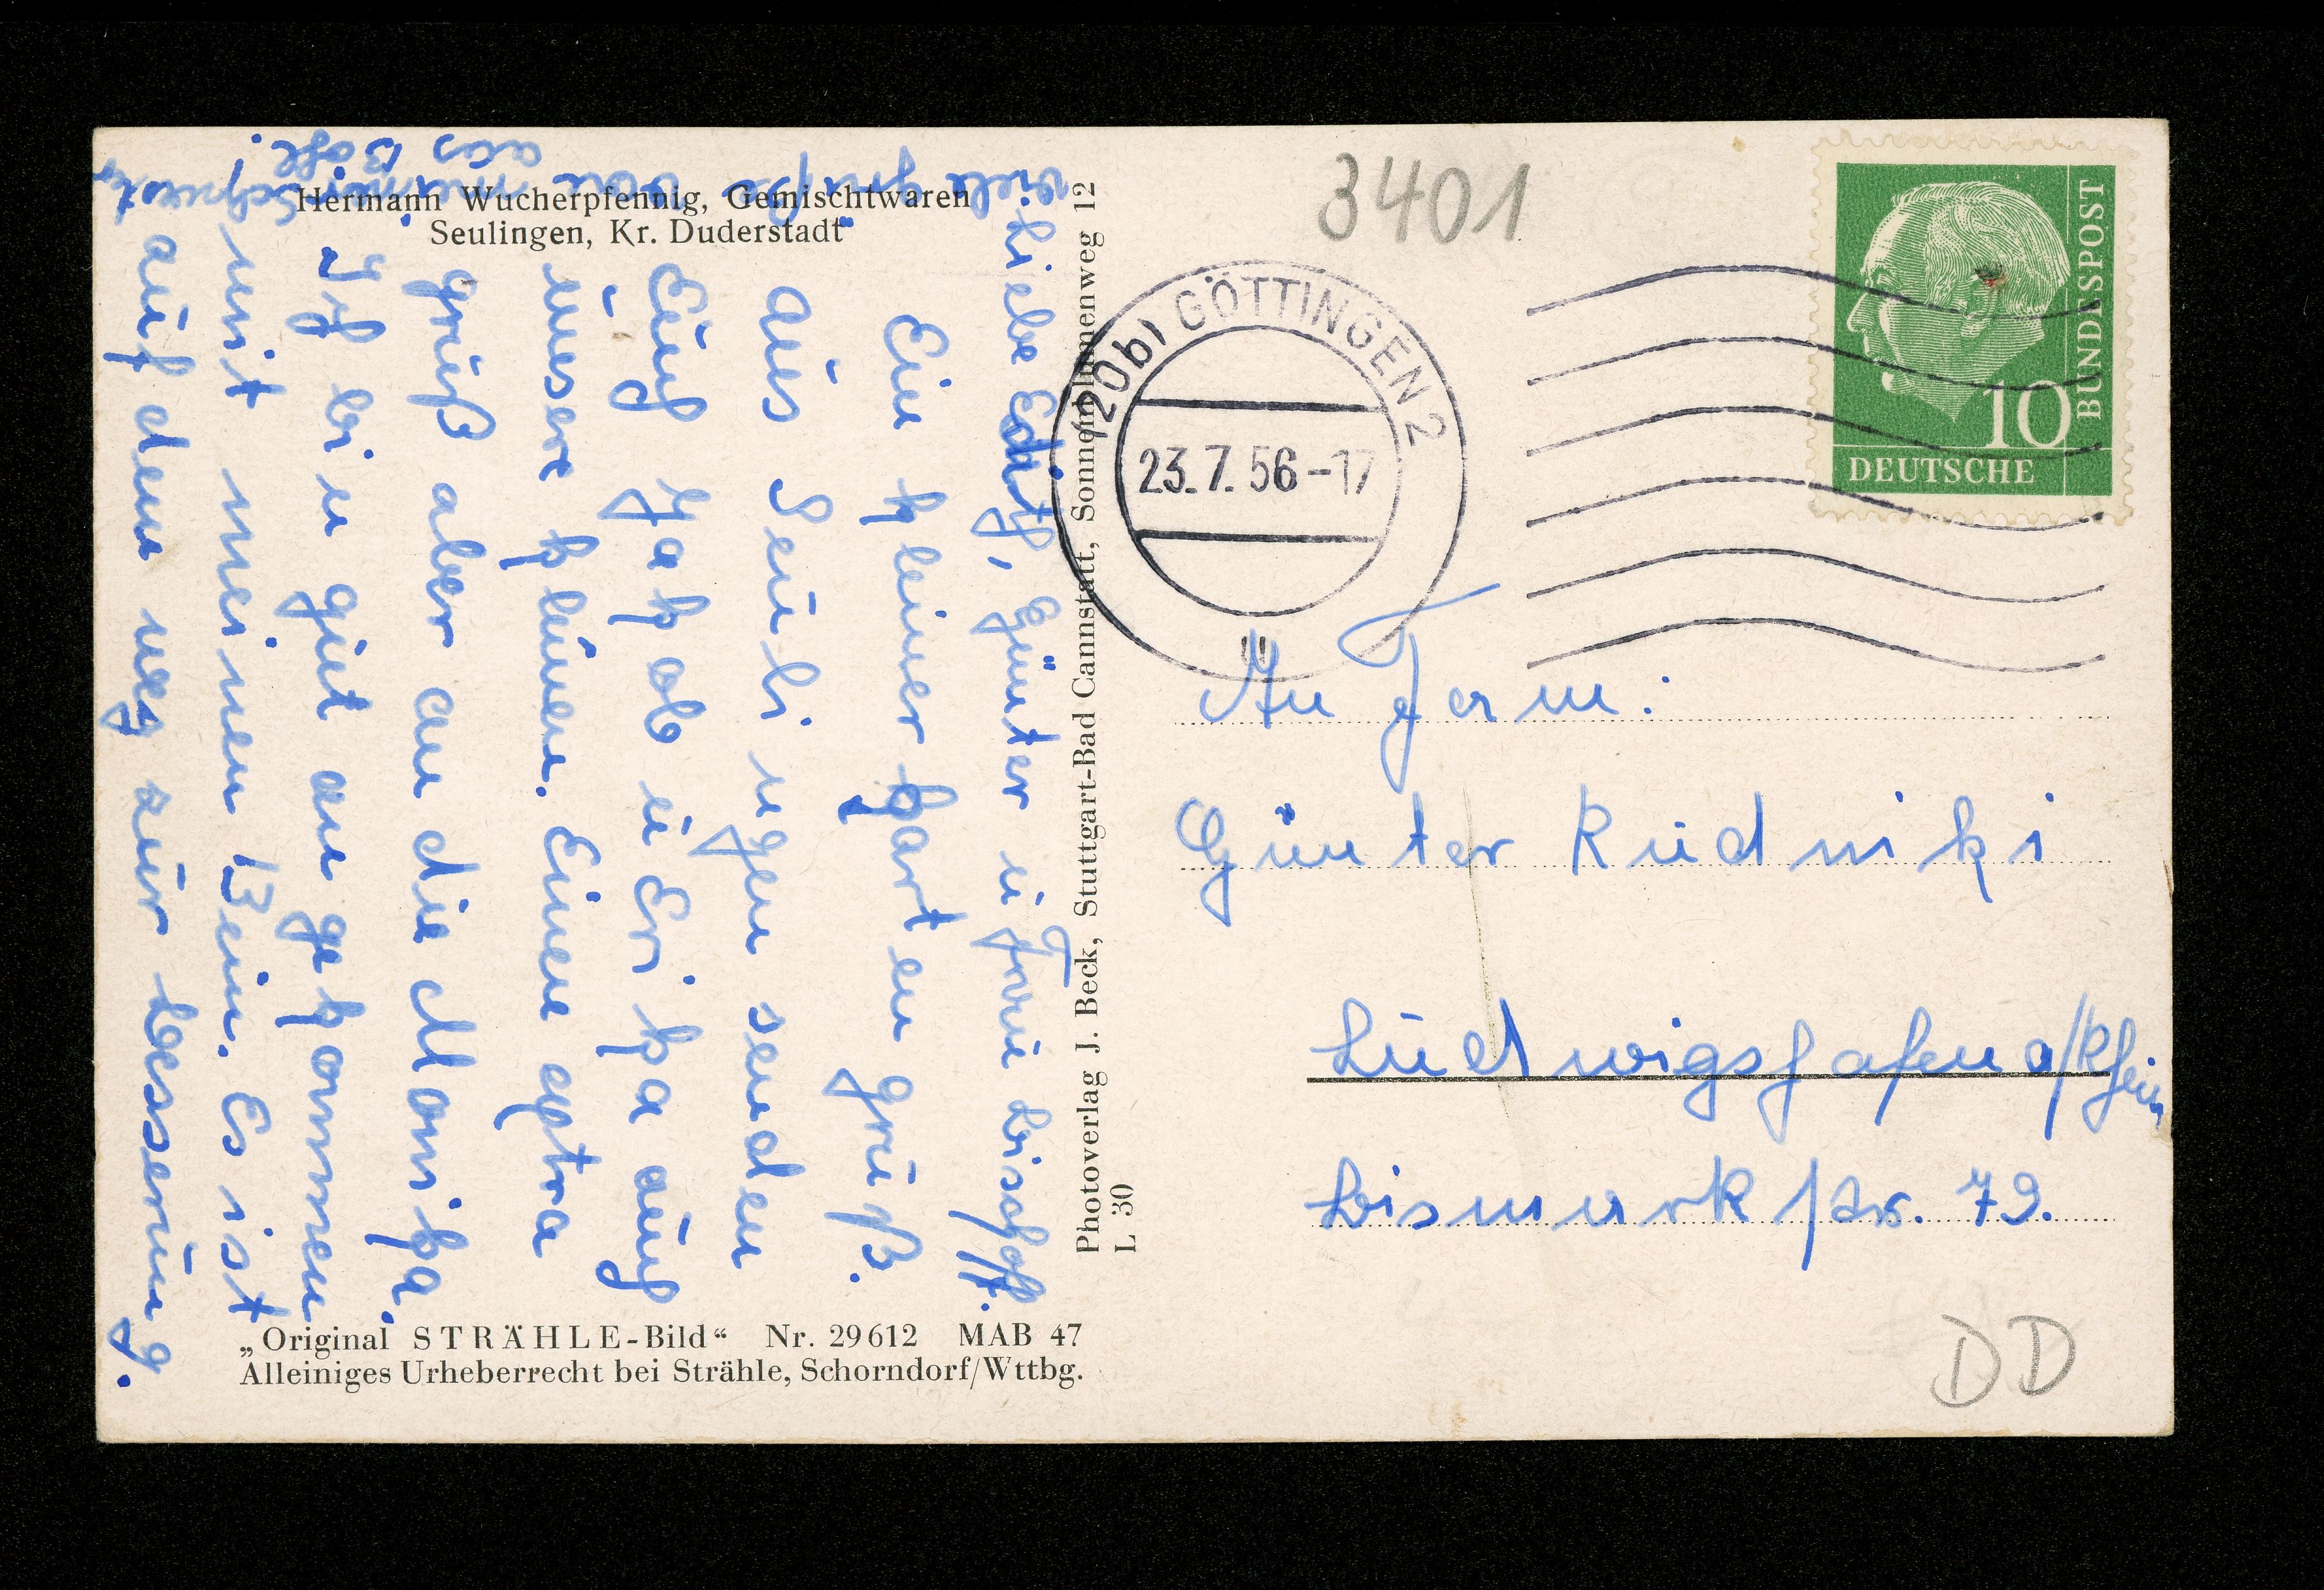 Hermann Wucherpfennig, Gemischtwaren
Seulingen, Kr. Duderstadt
Liebe Edith, Günter u Frau bischoff.
Ein kleiner karten gruß.
aus Seulingen senden
Euch Jakob u Erika auch
unsere kleine. Einen extra
gruß aber an die Monika.
Ich bin gut angekommen
mit meinen Bein. Es ist
auf dem weg zur besserung.
viele grüße
aus
„Original STRÄHLE-Bild“ Nr. 29612 MAB 47
Alleiniges Urheberrecht bei Strähle, Schorndorf/Wttbg.
Photoverlag J. Beck, Stuttgart-Bad Cannstatt, Sonnenblumenweg 12
L 30
3401
(20b) GÖTTINGEN 2
23.7.56-17
10
DEUTSCHE
BUNDESPOST
An Ferm:
Günter Rudniki
Ludwigshafen a/Rhein
bismarkstr. 79.
DD